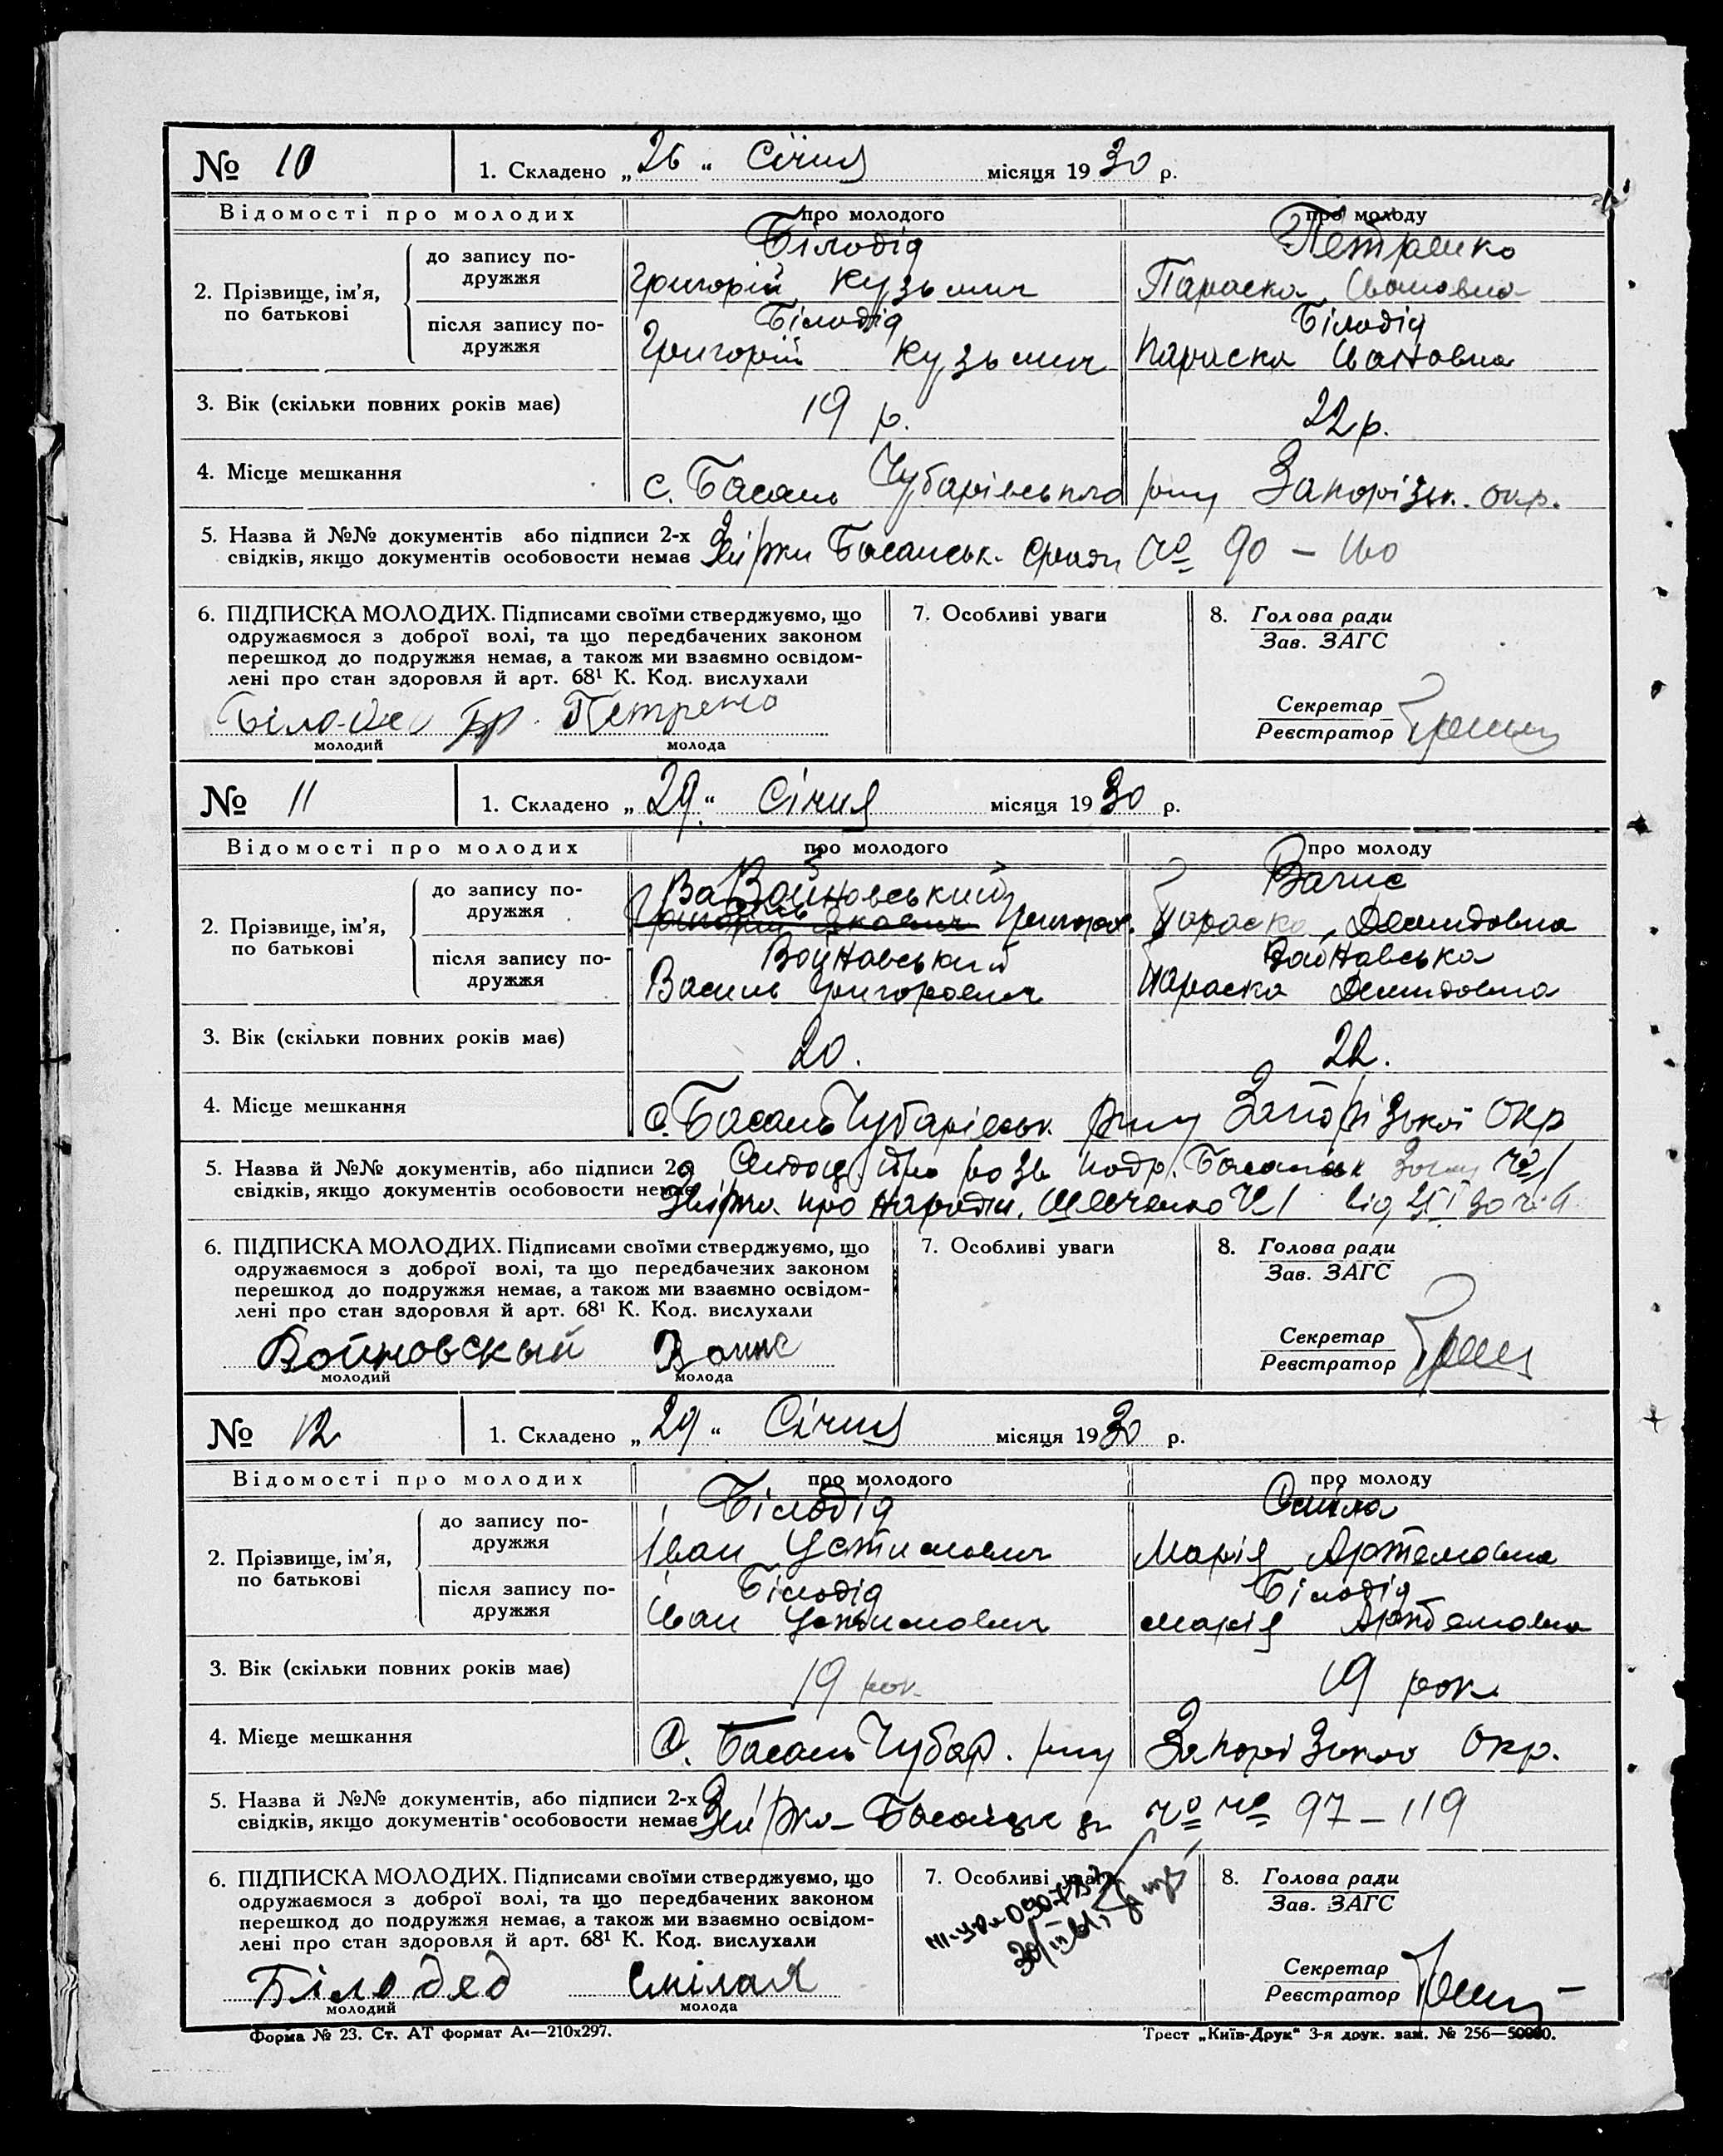 № 10 1. Складено „ 26 “ Січня місяця 19 30 р.
Відомості про молодих про молодого про молоду
2. Прізвище, ім’я, по батькові
до запису по-
дружжя
Білодід
Григорій Кузьмич
Петренко
Параска Івановна
після запису по-
дружжя
Білодід
Григорій Кузьмич
Білодід
Параска Івановна
3. Вік (скільки повних років має) 19 р. 22 р.
4. Місце мешкання с. Басань Чубарівського р-ну Запорізьк. окр.
5. Назва й №№ документів або підписи 2-х
свідків, якщо документів особовости немає Басанськ. № 90 –
6. ПІДПИСКА МОЛОДИХ. Підписами своїми стверджуємо, що
одружаємося з доброї волі, та що передбачених законом
перешкод до подружжя немає, а також ми взаємно освідом-
лені про стан здоровля й арт. 68¹ К. Код. вислухали
Гр. Петренко
молодий молода
7. Особливі уваги
8. Голова ради
Зав. ЗАГС
Секретар
Реєстратор
№ 11 1. Складено „ 29 “ Січня місяця 19 30 р.
Відомості про молодих про молодого про молоду
2. Прізвище, ім’я,
по батькові
до запису по-
дружжя
Войновський
Параска Демидовна
після запису по-
дружжя
Войновський
Василь Григорович
Войновська
Параска Демидовна
3. Вік (скільки повних років має) 20. 22.
4. Місце мешкання с. Басань Чубарівськ. р-ну Запорізької Окр
5. Назва й №№ документів, або підписи 2-х
свідків, якщо документів особовости немає
про подр. Басанськ
про народж. Шевченко від
6. ПІДПИСКА МОЛОДИХ. Підписами своїми стверджуємо, що
одружаємося з доброї волі, та що передбачених законом
перешкод до подружжя немає, а також ми взаємно освідом-
лені про стан здоровля й арт. 68¹ К. Код. вислухали
Войновский
молодий молода
7. Особливі уваги
8. Голова ради
Зав. ЗАГС
Секретар
Реєстратор
№ 12 1. Складено „ 29 “ Січня місяця 19 30 р.
Відомості про молодих про молодого про молоду
2. Прізвище, ім’я,
по батькові
до запису по-
дружжя
Білодід
Іван Устимович
Сміла
Марія Артемовна
після запису по-
дружжя
Білодід
Іван Устимович
Білодід
Марія Артемовна
3. Вік (скільки повних років має) 19 рок. 19 рок.
4. Місце мешкання С. Басань Чубар. р-ну Запорізької Окр.
5. Назва й №№ документів, або підписи 2-х
свідків, якщо документів особовости немає № № 97 – 119
6. ПІДПИСКА МОЛОДИХ. Підписами своїми стверджуємо, що
одружаємося з доброї волі, та що передбачених законом
перешкод до подружжя немає, а також ми взаємно освідом-
лені про стан здоровля й арт. 68¹ К. Код. вислухали
Білодед Смілая
молодий молода
7. Особливі уваги
8. Голова ради
Зав. ЗАГС
Секретар
Реєстратор
Форма № 23. Ст. АТ формат А₄—210х297.
Трест „Київ-Друк“ 3-я друк. зам. № 256—50000.